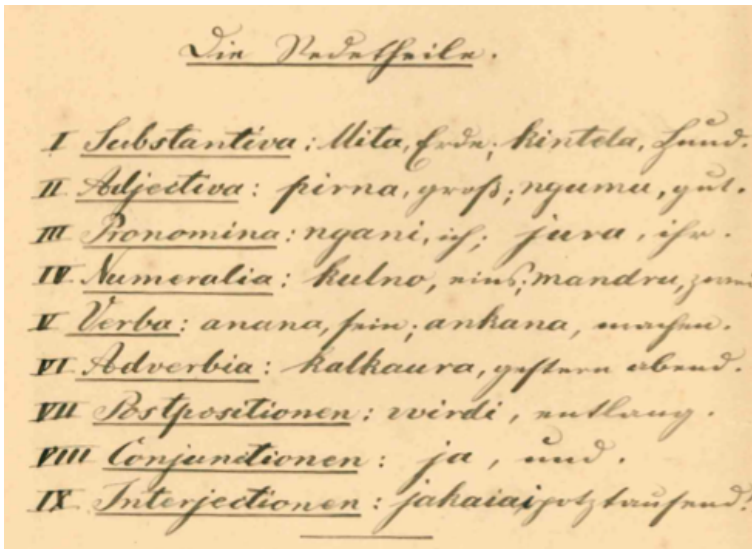 Die Redetheile.
I Substantiva: Mita, Erde; kintela, Hund.
II Adjectiva: pirna, groß; ngumu, gut.
III Pronomina: ngani, ich; jura, ihr.
IV Numeralia: kulno, eins; mandru, zwei
V Verba: anana, sein; ankana, machen.
VI Adverbia: kalkaura, gestern abend.
VII Postpositionen: wirdi, entlang.
VIII Conjunctionen: ja, und.
IX Interjectionen: jakaiai, potztausend.